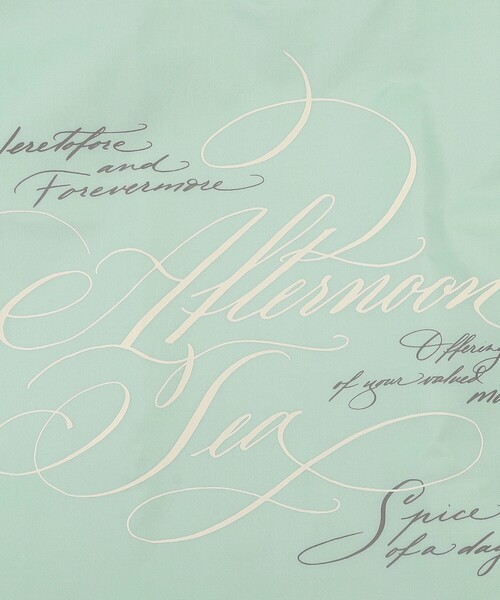 Heretofore
and
Forevermore
Afternoon
Tea
Offering
of your valued
Spice
of a day